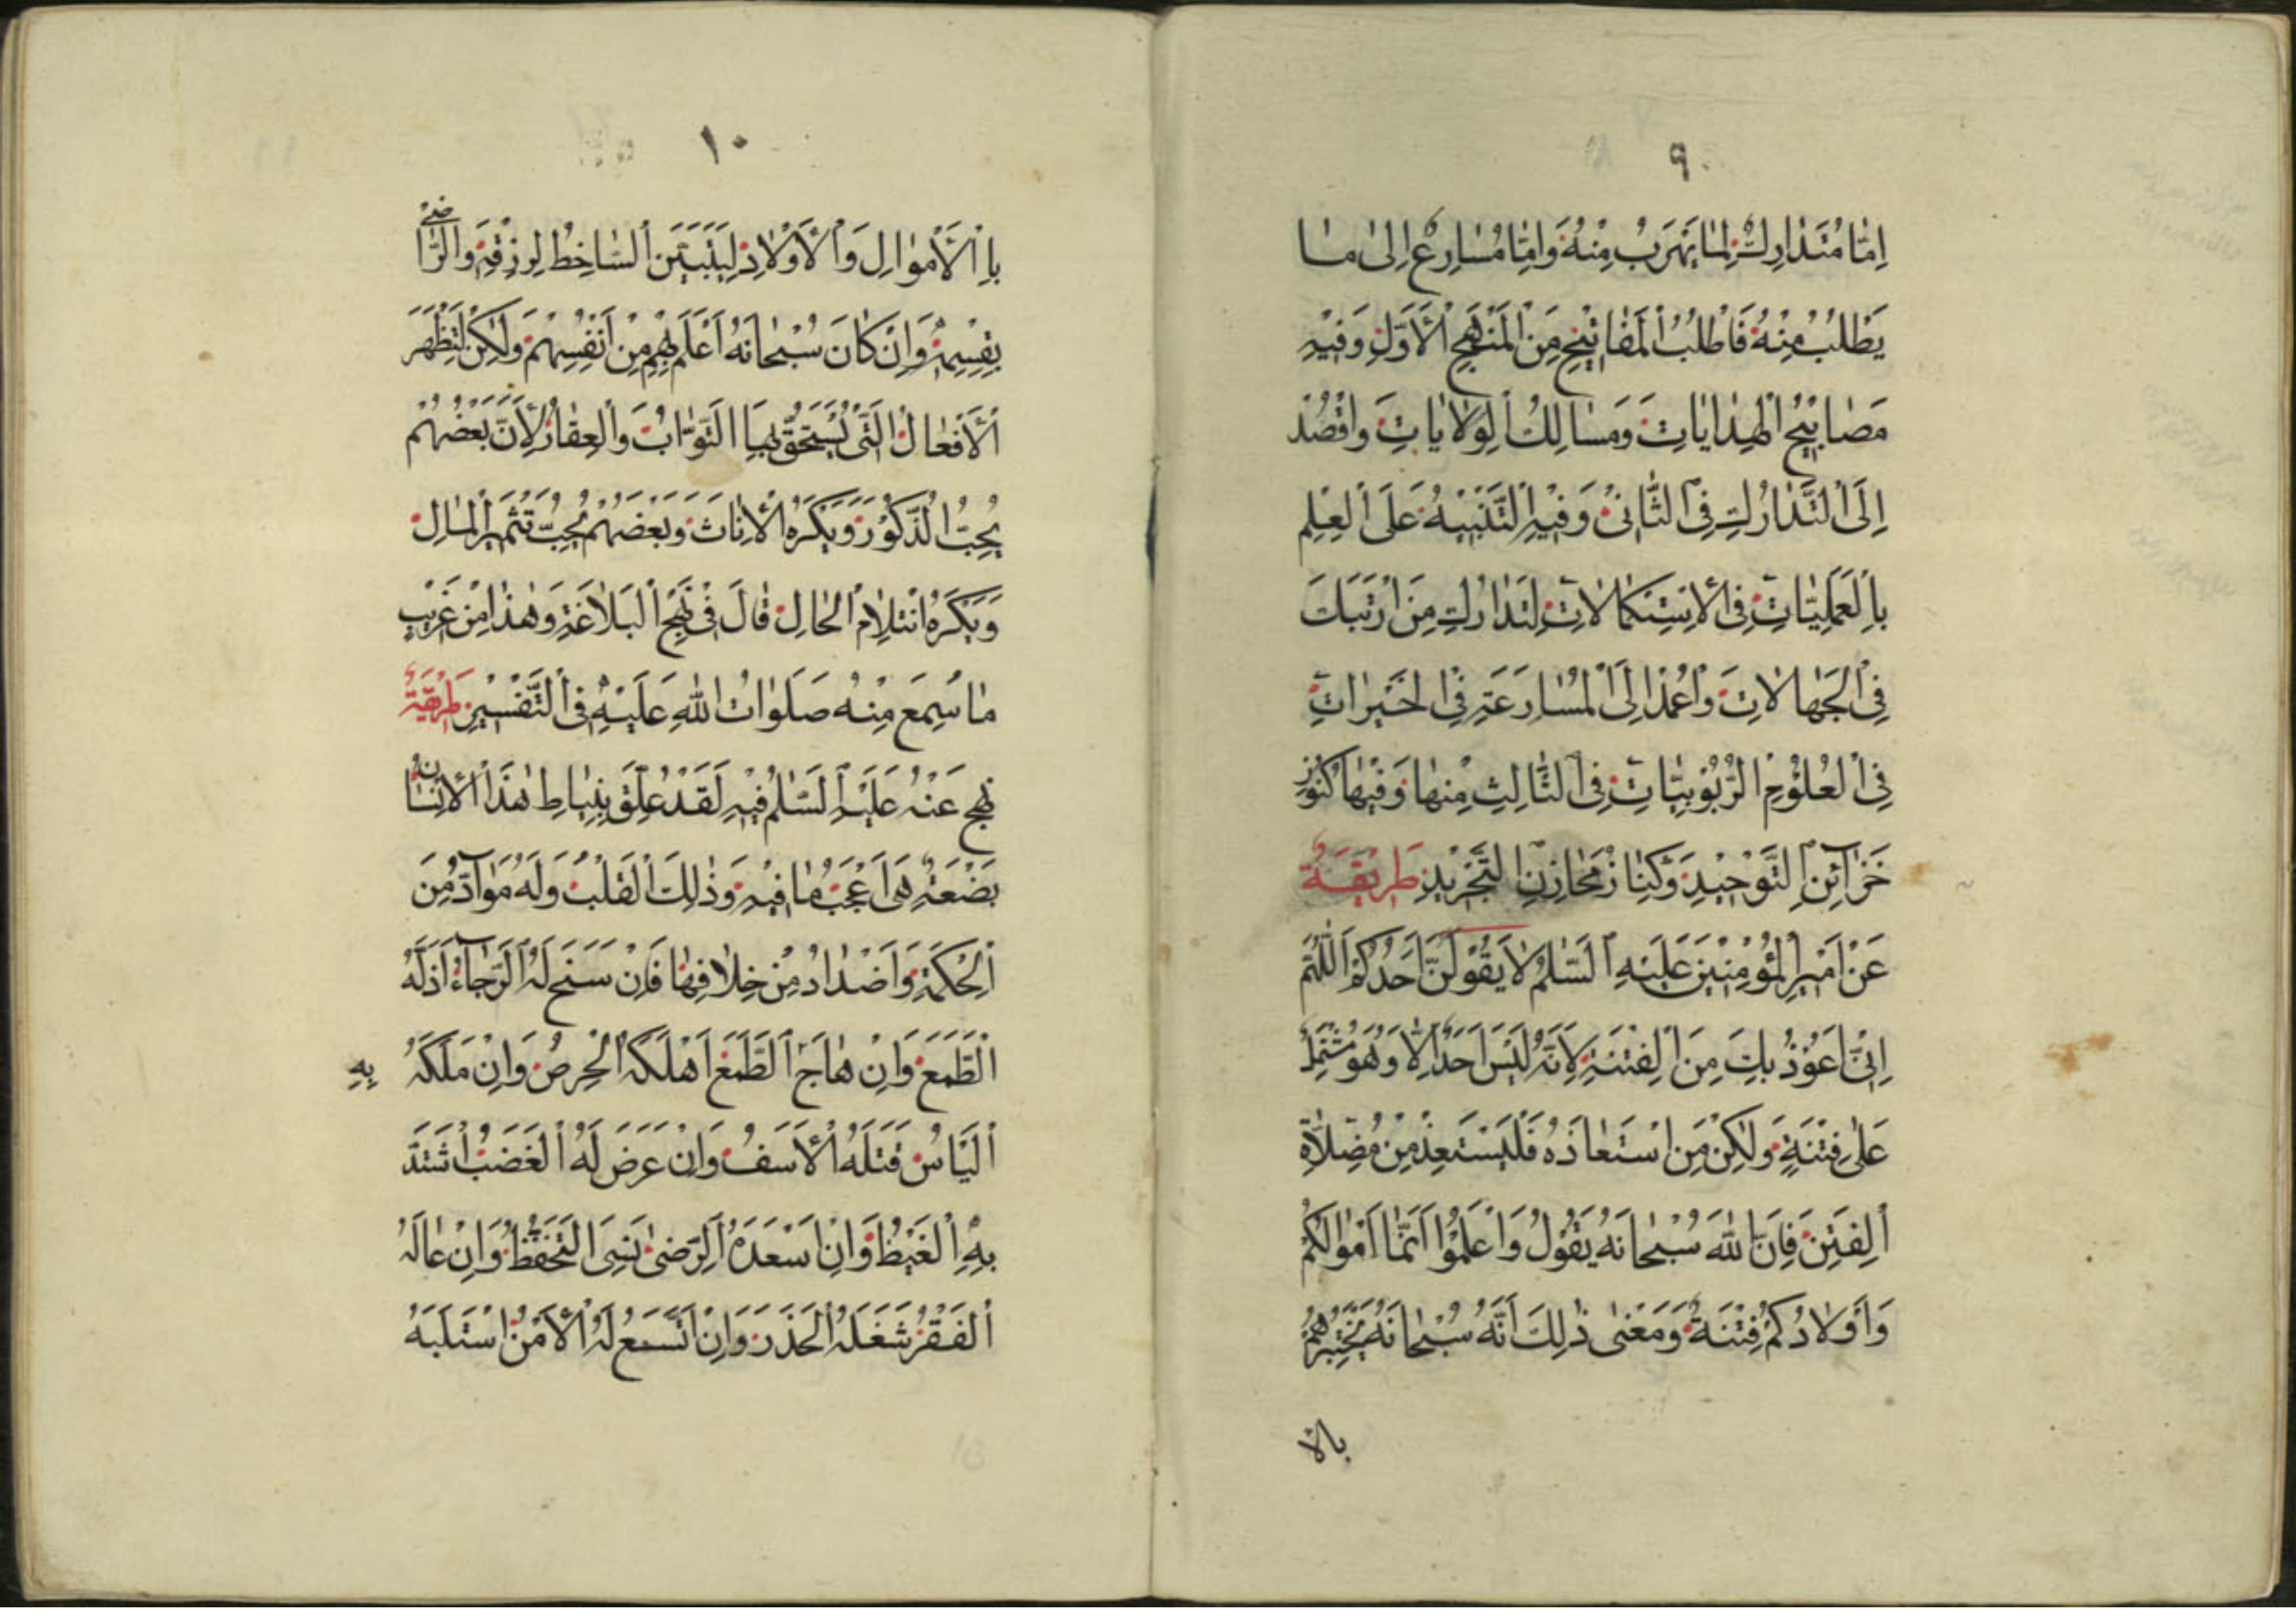 ٩
اِمّٰا مُتَدٰارِكٌ لِمٰا يَهْرَبُ مِنْهُ وَاِمّٰا مُسٰارِعٌ اِلىٰ مٰا
يَطْلُبُ مِنْهُ فَاطْلُبْ الْمَفٰاتيْحِ مِنَ الْمَنْهَجِ الْاَوَّلِ وَفيْهِ
مَصٰابيْحُ الْهِدٰايٰاتِ وَمَسٰالِكُ الْوِلٰايٰاتِ وَاقْصُدْ
اِلَى الْتَّدٰارُكِ فِى الْثّٰانىْ وَفيْهِ الْتَّنْبيْهُ عَلَى الْعِلْمِ
بِالْعَمَلِيّٰاتِ فِى الْاِسْتِكْمٰالٰاتِ لِتَدٰارُكِ مَنِ ارْتَبَكَ
فِى الْجَهٰالٰاتِ وَاعْمُدْ اِلَى الْمُسٰارَعَةِ فِى الْخَيْرٰاتِ
فِى الْعُلُوْمِ الْرُّبُوْبِيّٰاتِ فِى الْثّٰالِثِ مِنْهٰا وَفيْهٰا كُنُوْزُ
خَزٰآئِنِ الْتَّوْحيْدِ وَكِنٰازُ مَخٰازِنِ الْتَّجْريْدِ طَريْقَةٌ
عَنْ اَميْرِ الْمُؤْمِنيْنَ عَلَيْهِ الْسَّلٰمُ لٰا يَقُوْلَنَّ اَحَدُكُمْ اَللّٰهُمَّ
اِنّىْ اَعُوْذُ بِكَ مِنَ الْفِتْنَةِ لِاَنَّهُ لَيْسَ اَحَدٌ اِلّٰا وَهُوَ مُشْتَمِلٌ
عَلىٰ فِتْنَةٍ وَلٰكِنْ مَنِ اسْتَعٰاذَهُ فَلْيَسْتَعِذْ مِنْ مُضِلّٰاتِ
الْفِتَنِ فَاِنَّ اللّٰهَ سُبْحٰانَهُ يَقُوْلُ وَاعْلَمُوْا اَنَّمٰا اَمْوٰالُكُمْ
وَاَوْلٰادُكُمْ فِتْنَةٌ وَمَعْنىٰ ذٰلِكَ اَنَّهُ سُبْحٰانَهُ يَخْتَبِرُهُمْ
بالا
١٠
بِالْاَمْوٰالِ وَالْاَوْلٰادِ لِيَتَبَيَّنَ الْسّٰاخِطُ لِرِزْقِهِ وَالْرّٰاضىْ
بِقِسْمِهِ وَاِنْ كٰانَ سُبْحٰانَهُ اَعْلَمَ بِهِمْ مِنْ اَنْفُسِهِمْ وَلٰكِنْ لِتَظْهَرَ
الْاَفْعٰالُ الَّتىْ يُسْتَحَقُّ بِهَا الْثَّوٰابُ وَالْعِقٰابُ لِاَنَّ بَعْضَهُمْ
يُحِبُّ الْذُّكُوْرَ وَيَكْرَهُ الْاِنٰاثَ وَبَعْضَهُمْ يُحِبُّ تَثْميْرَ الْمٰالِ
وَيَكْرَهُ انْثِلٰامَ الْحٰالِ قٰالَ فىْ نَهْجِ الْبَلٰاغَةِ وَهٰذٰا مِنْ غَريْبِ
مٰا سُمِعَ مِنْهُ صَلَوٰاتُ اللّٰهِ عَلَيْهِ فِى الْتَّفْسيْرِ طَريْقَةٌ
نهج عَنْهُ عَلَيْهِ الْسَّلٰمُ فيْهِ لَقَدْ عُلِّقَ بِنِيٰاطِ هٰذَا الْاِنْسٰانِ
بَضْعَةٌ هِىَ اَعْجَبُ مٰا فيْهِ وَذٰلِكَ الْقَلْبُ وَلَهُ مَوٰآدُّ مِنَ
الْحِكْمَةِ وَاَضْدٰادٌ مِنْ خِلٰافِهٰا فَاِنْ سَنَحَ لَهُ الْرَّجٰآءُ اَذَلَّهُ
الْطَّمَعُ وَاِنْ هٰاجَ الْطَّمَعُ اَهْلَكَهُ الْحِرْصُ وَاِنْ مَلَكَهُ به
الْيَاْسُ قَتَلَهُ الْاَسَفُ وَاِنْ عَرَضَ لَهُ الْغَضَبُ اشْتَدَّ
بِهِ الْغَيْظُ وَاِنْ اَسْعَدَهُ الْرِّضىٰ نَسِىَ الْتَّحَفُّظَ وَاِنْ عٰالَهُ
الْفَقْرُ شَغَلَهُ الْحَذَرُ وَاِنِ اتَّسَعَ لَهُ الْاَمْنُ اسْتَلَبَهُ